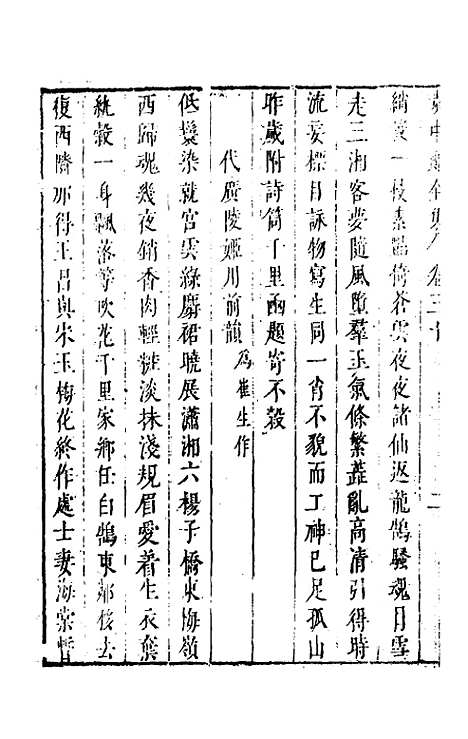 卷三
綃裳一枝素艷倚蒼雲夜夜諸仙返龍鵠騷魂月雪
走三湘客夢隨風墮羣玉氣條繁蕋亂高清引得時
流妄標目詠物寫生同一肖不貌而工神已足孤山
昨歲附詩筒千里函題寄不穀
代廣陵姬川前韻為崔生作
低鬟染就宮雲綠麝裙曉展瀟湘六楊子橋東梅嶺
西歸魂幾夜銷香肉輕粧淡抹淺規眉愛着生衣
紈縠一身飄落等吹花千里家鄉任白鵠東鄰移去
復西鄰那得王昌與宋玉梅花終作處士妻海棠暫